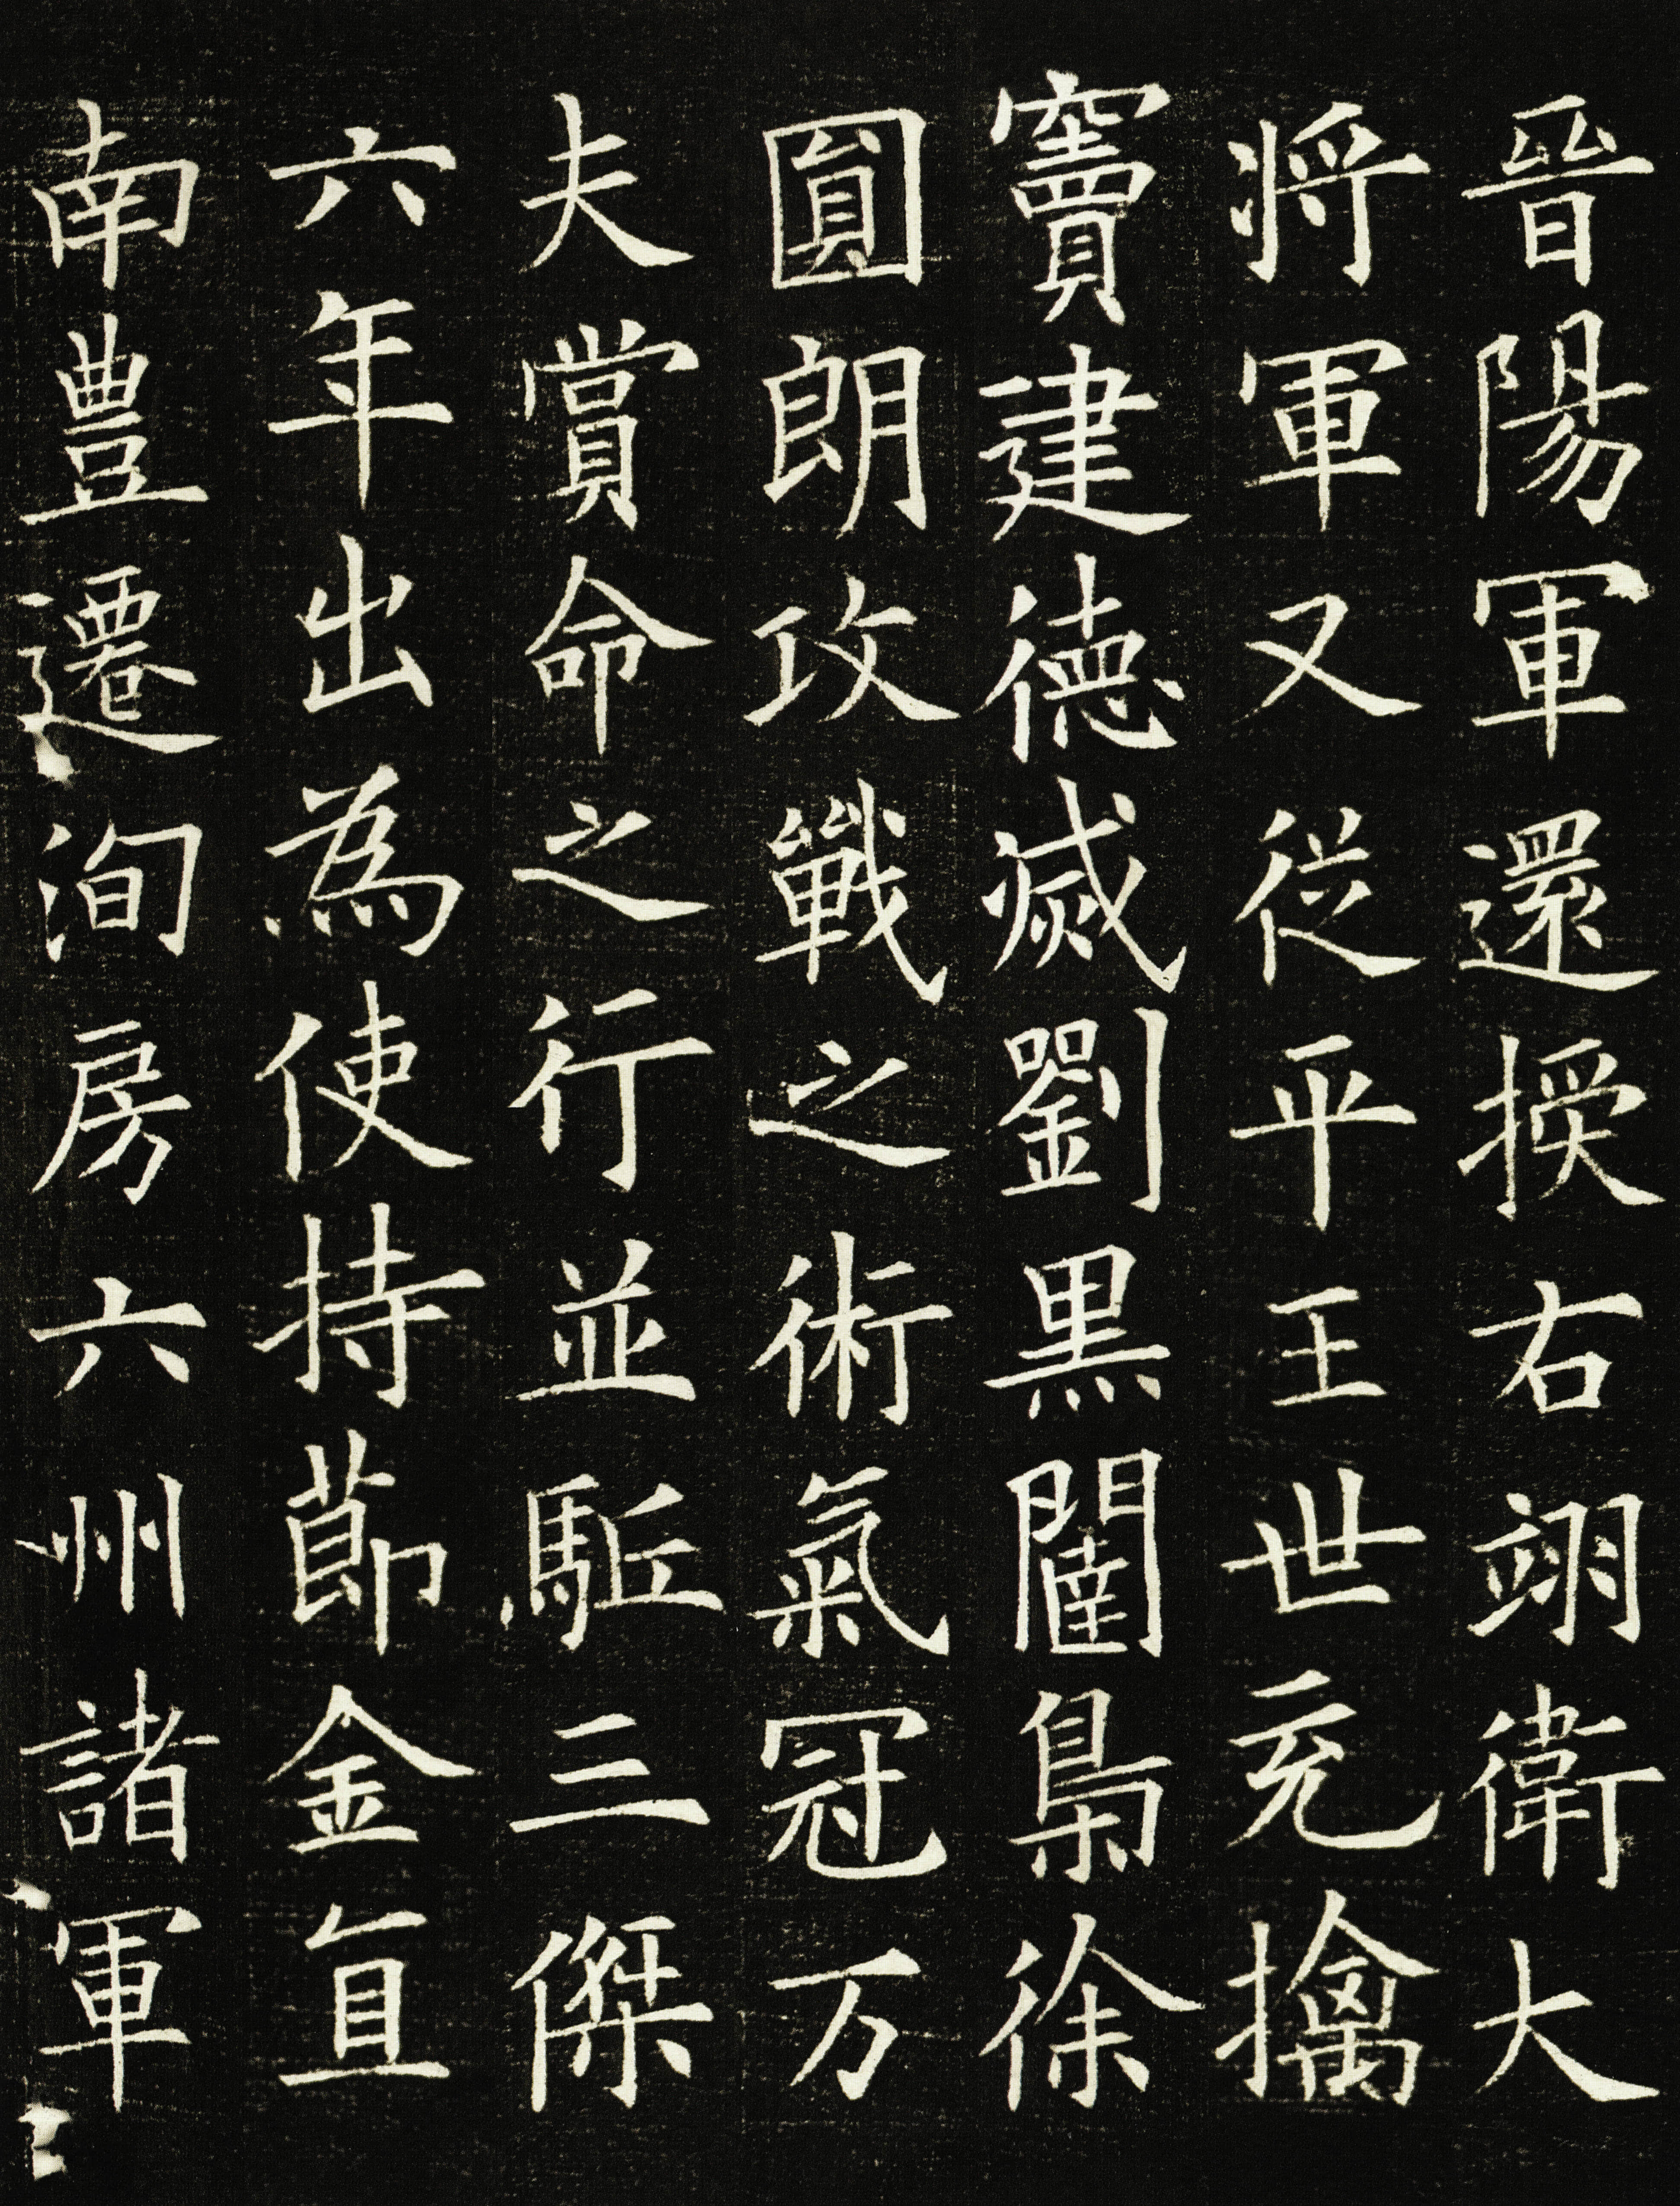 晉陽軍還授右翊衛大
将軍又從平王世充擒
竇建德滅劉黒闥梟徐
圓朗攻戰之術氣冠万
夫賞命之行並駈三傑
六年出為使持節金直
南豊遷洵房六州諸軍